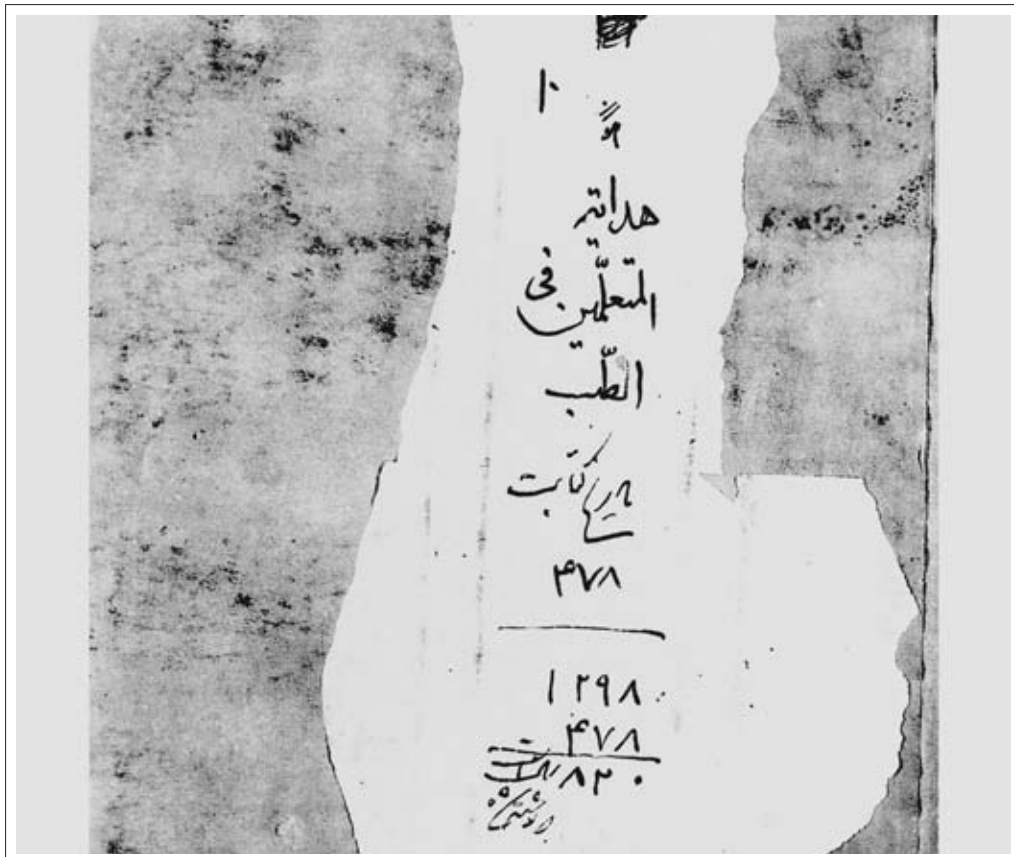 ۱۰
هدایة
المتعلّمین فی
الطّب
تاریخ کتابت
۴۷۸
۱۲۹۸
۴۷۸
۸۲۰ سال است